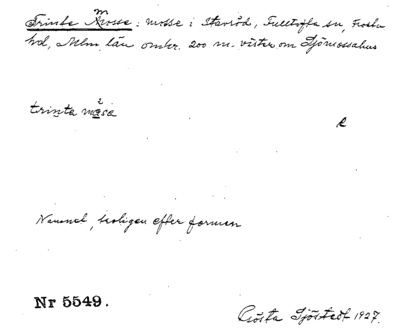 Trinta Mosse: mosse i Starröd, Fulltofta sn, Frosta
hd, Mlm län omkr. 200 m. väster om Sjömossahus
trinta måsa
R
Namnet, troligen efter formen
Nr 5549.
Gösta Sjöstedt 1927.